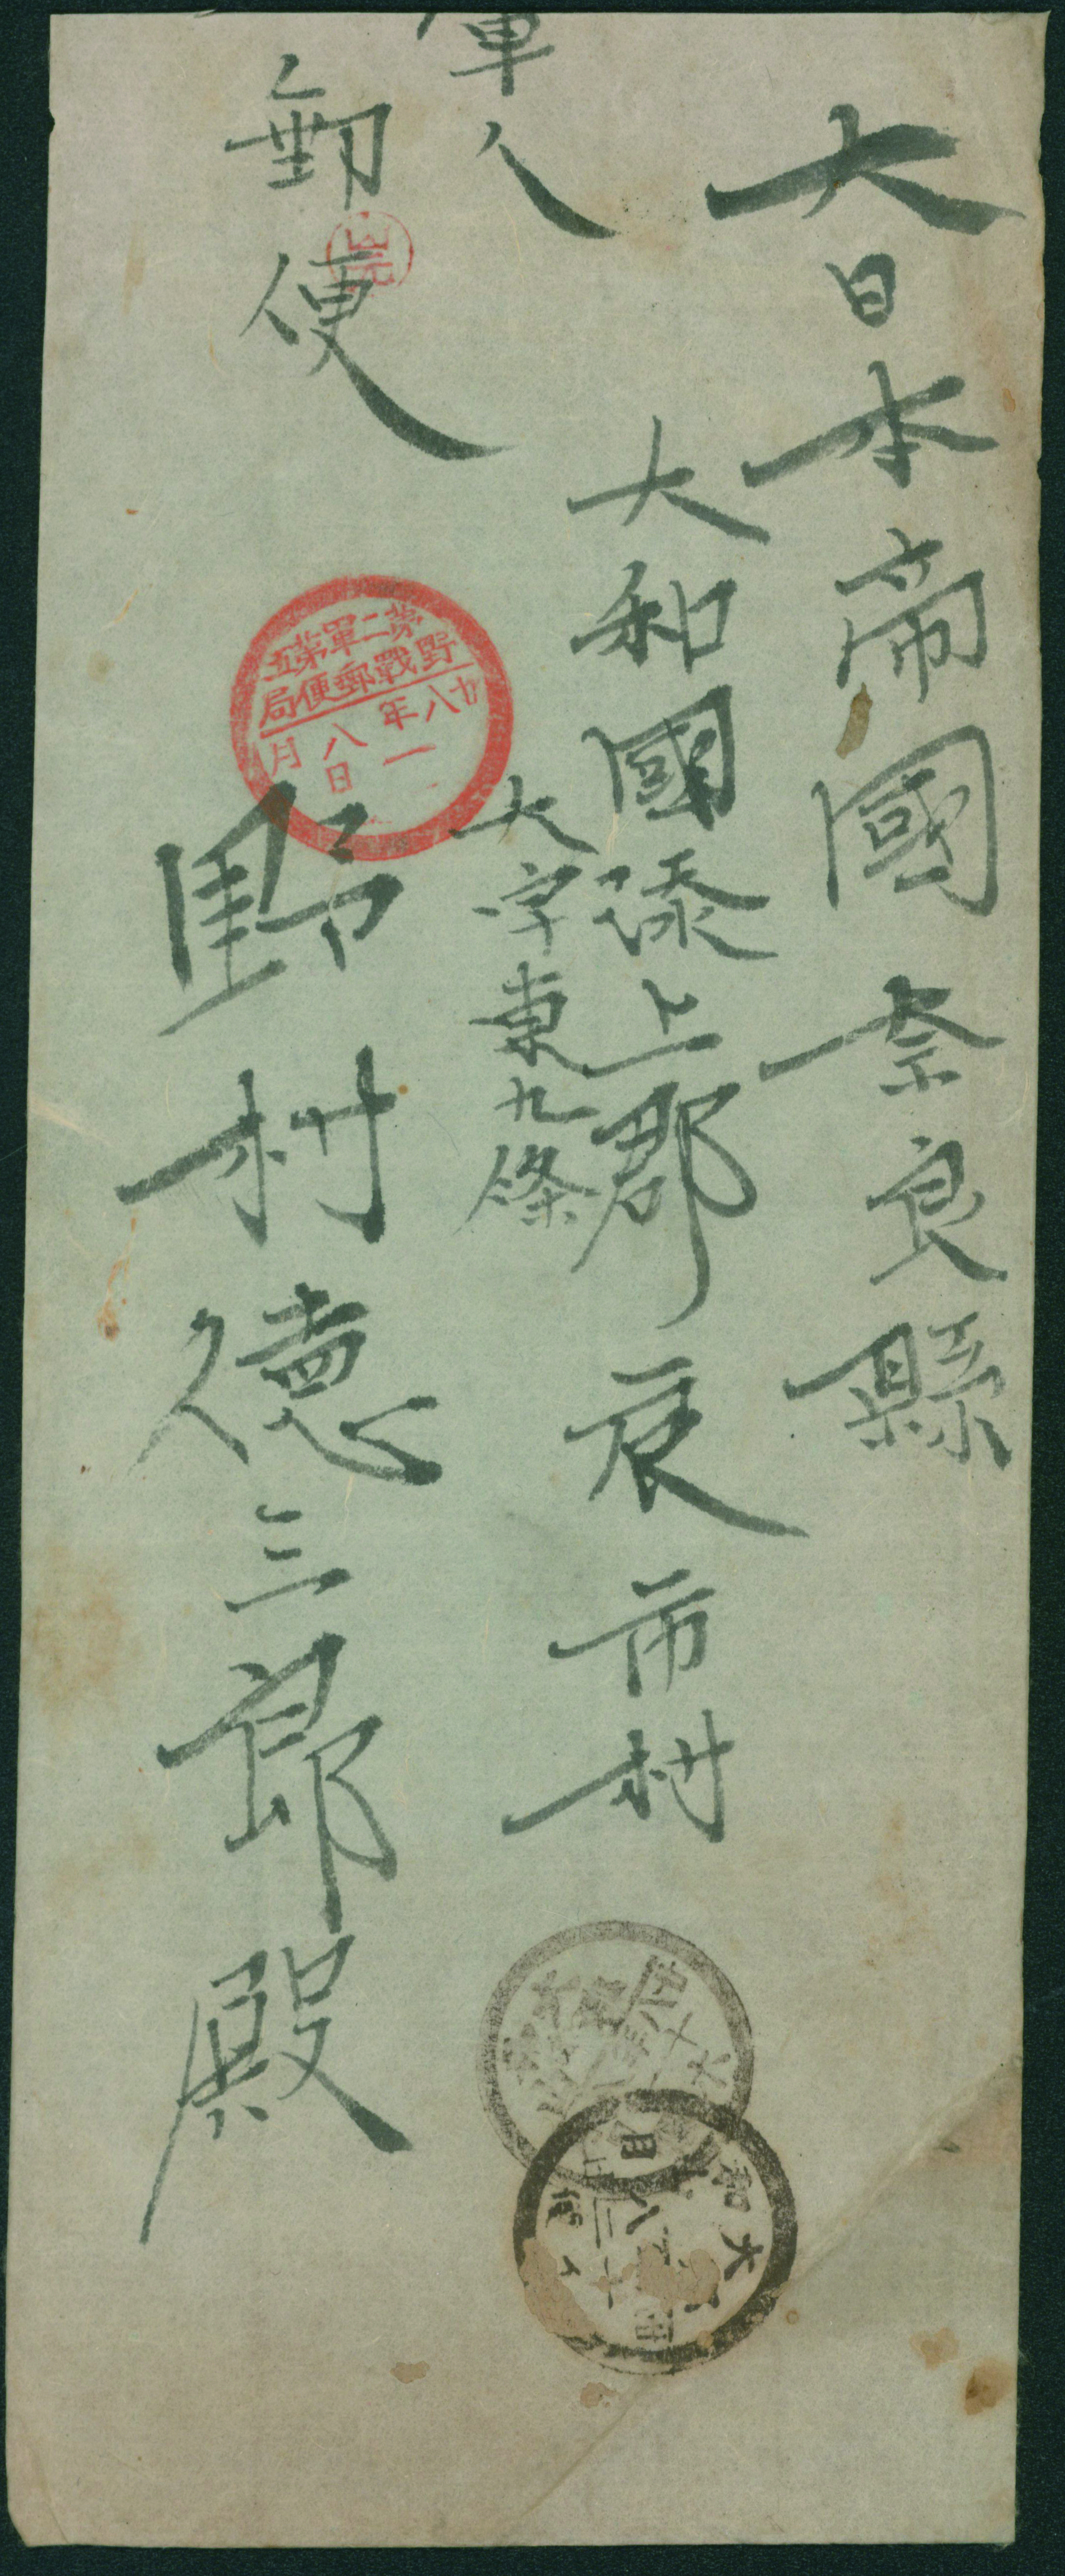 大日本帝國奈良縣
大和國添上郡辰市村
大字東九條
軍人
郵便
野村德三郎殿
第二軍第五
野戰郵便局
廿八年
一月
八日
大和